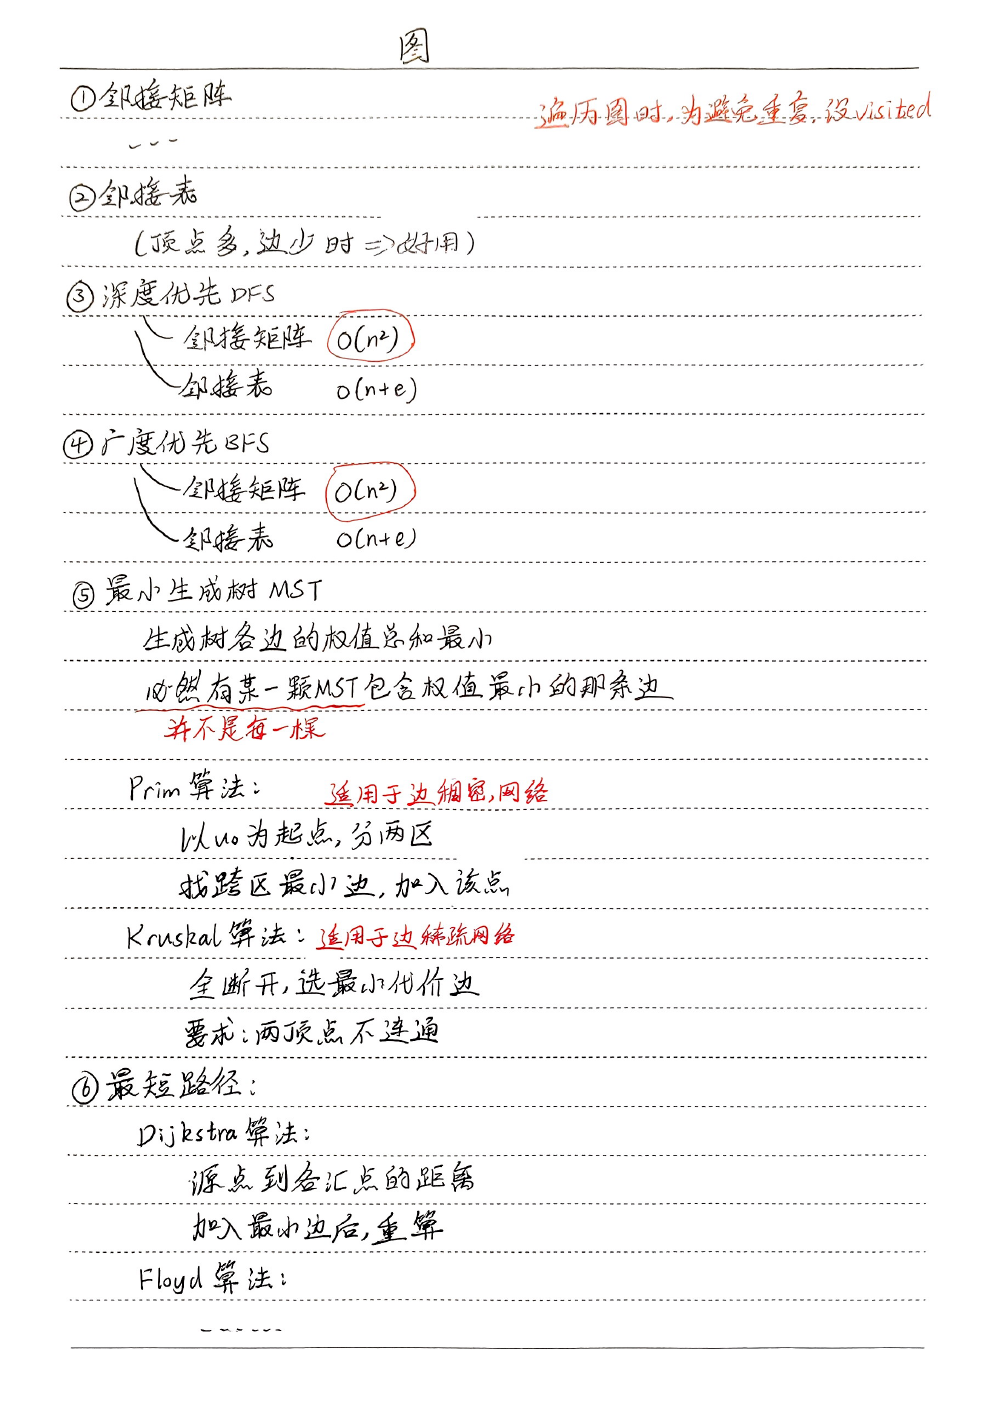 图
①邻接矩阵
遍历图时,为避免重复,设visited
②邻接表
(顶点多,边少时=>好用)
③深度优先DFS
邻接矩阵 O(n²)
邻接表 O(n+e)
④广度优先BFS
邻接矩阵 O(n²)
邻接表 O(n+e)
⑤最小生成树MST
生成树各边的权值总和最小
必然有某一颗MST包含权值最小的那条边
并不是每一棵
Prim算法: 适用于边稠密,网络
以u₀为起点,分两区
找跨区最小边,加入该点
Kruskal算法: 适用于边稀疏网络
全断开,选最小代价边
要求:两顶点不连通
⑥最短路径:
Dijkstra算法:
源点到各汇点的距离
加入最小边后,重算
Floyd算法: